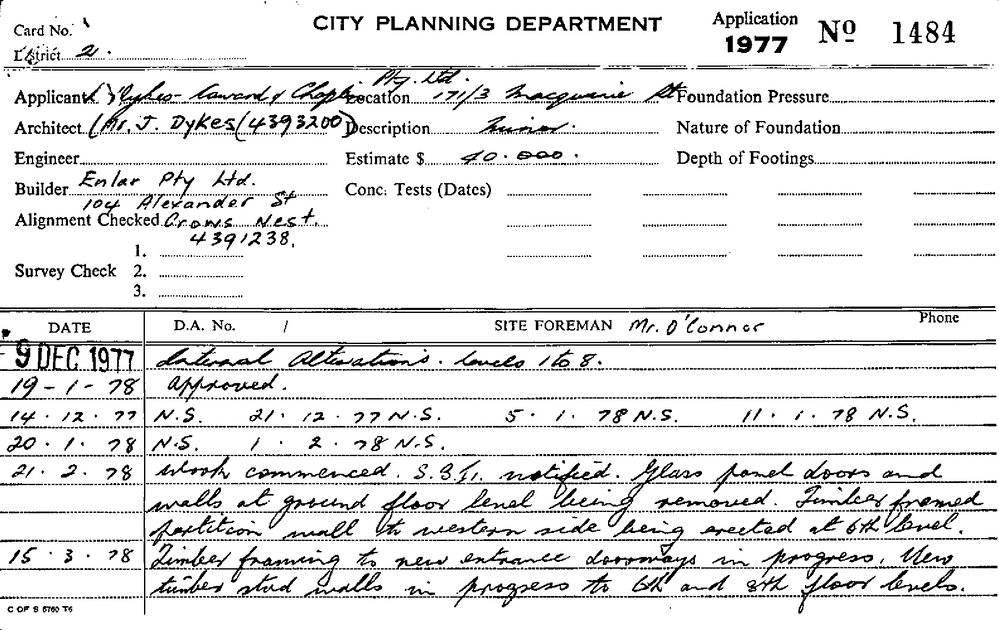 CITY PLANNING DEPARTMENT
Application
1977 Nº 1484
Card No.
District 2.
Applicant Dykes- Coward & Chaplin Pty. Ltd.
Location 171/3 Macquarie St
Foundation Pressure
Architect (Mr. J. Dykes (4393200)
Description Minor.
Nature of Foundation
Engineer
Estimate $ 40.000.
Depth of Footings
Builder Enlar Pty Ltd.
104 Alexander St
Conc. Tests (Dates)
Alignment Checked Crows Nest.
4391238.
1.
Survey Check 2.
3.
DATE D.A. No. / SITE FOREMAN Mr. O'Connor Phone
9 DEC 1977 Internal Alterations. Levels 1 to 8.
19-1-78 Approved.
14.12.77 N.S. 21.12.77 N.S. 5.1.78 N.S. 11.1.78 N.S.
20.1.78 N.S. 1.2.78 N.S.
21.2.78 Work commenced. notified. Glass panel doors and
walls at ground floor level being removed. Timber framed
partition wall to western side being erected at 6th level.
15.3.78 Timber framing to new entrance doorways in progress. New
timber stud walls in progress to 6th and 8th floor levels.
C OF S 5760 T6